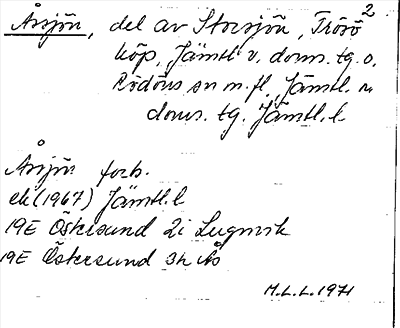 Årsjön, del av Storsjön, Frösö 2
köp, Jämtl. v. doms. tg. o.
Rödöns sn m.fl., Jämtl. n.
doms. tg. Jämtl. l.
Årsjön forb.
ek (1967) Jämtl. l
19E Östersund 2i Lugnvik
19E Östersund 3h Ås
M.L.L. 1971